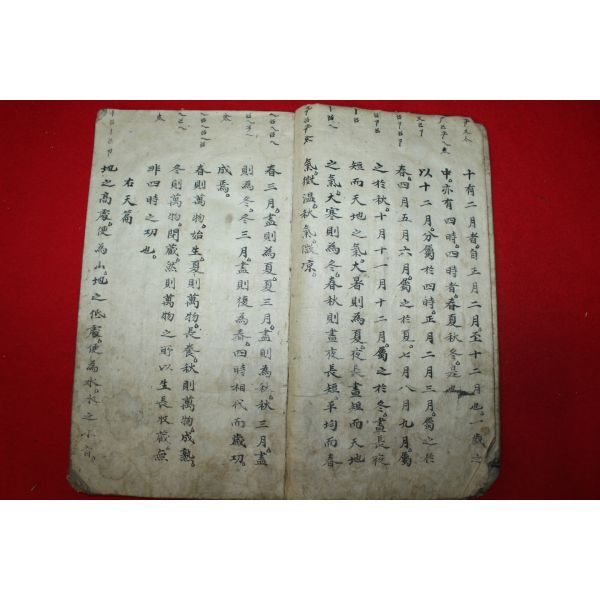 十有二月者自正月二月至十二月也一歲之
中亦有四時四時者春夏秋冬是也
以十二月分屬於四時正月二月三月屬之於
春四月五月六月屬之於夏七月八月九月屬
之於秋十月十一月十二月屬之於冬晝長夜
短而天地之氣大暑則為夏夜長晝短而天地
之氣大寒則為冬春秋則晝夜長短平均而春
氣微温秋氣微凉
春三月盡則為夏夏三月盡則為秋秋三月盡
則為冬冬三月盡則復為春四時相代而歲功
成焉
春則萬物始生夏則萬物長養秋則萬物成熟
冬則萬物閉藏然則萬物之所以生長收藏無
非四時之功也
右天篇
地之高處便為山地之低處便為水水之小者